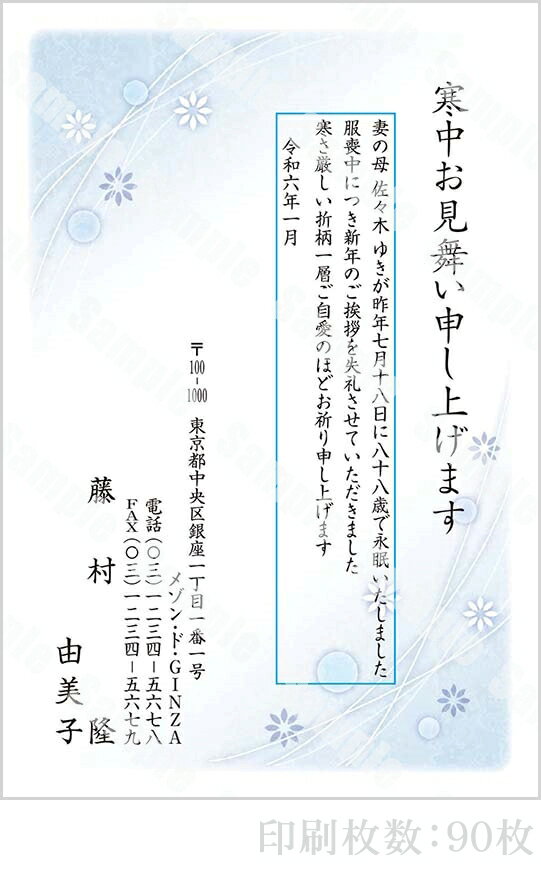 寒中お見舞い申し上げます
妻の母 佐々木 ゆきが昨年七月十八日に八十八歳で永眠いたしました
服喪中につき新年のご挨拶を失礼させていただきました
寒さ厳しい折柄一層ご自愛のほどお祈り申し上げます
令和六年一月
〒100-1000 東京都中央区銀座一丁目一番一号
メゾン・ド・GINZA
電話(〇三)一二三四-五六七八
FAX(〇三)一二三四-五六七九
藤村 隆
由美子
印刷枚数:90枚